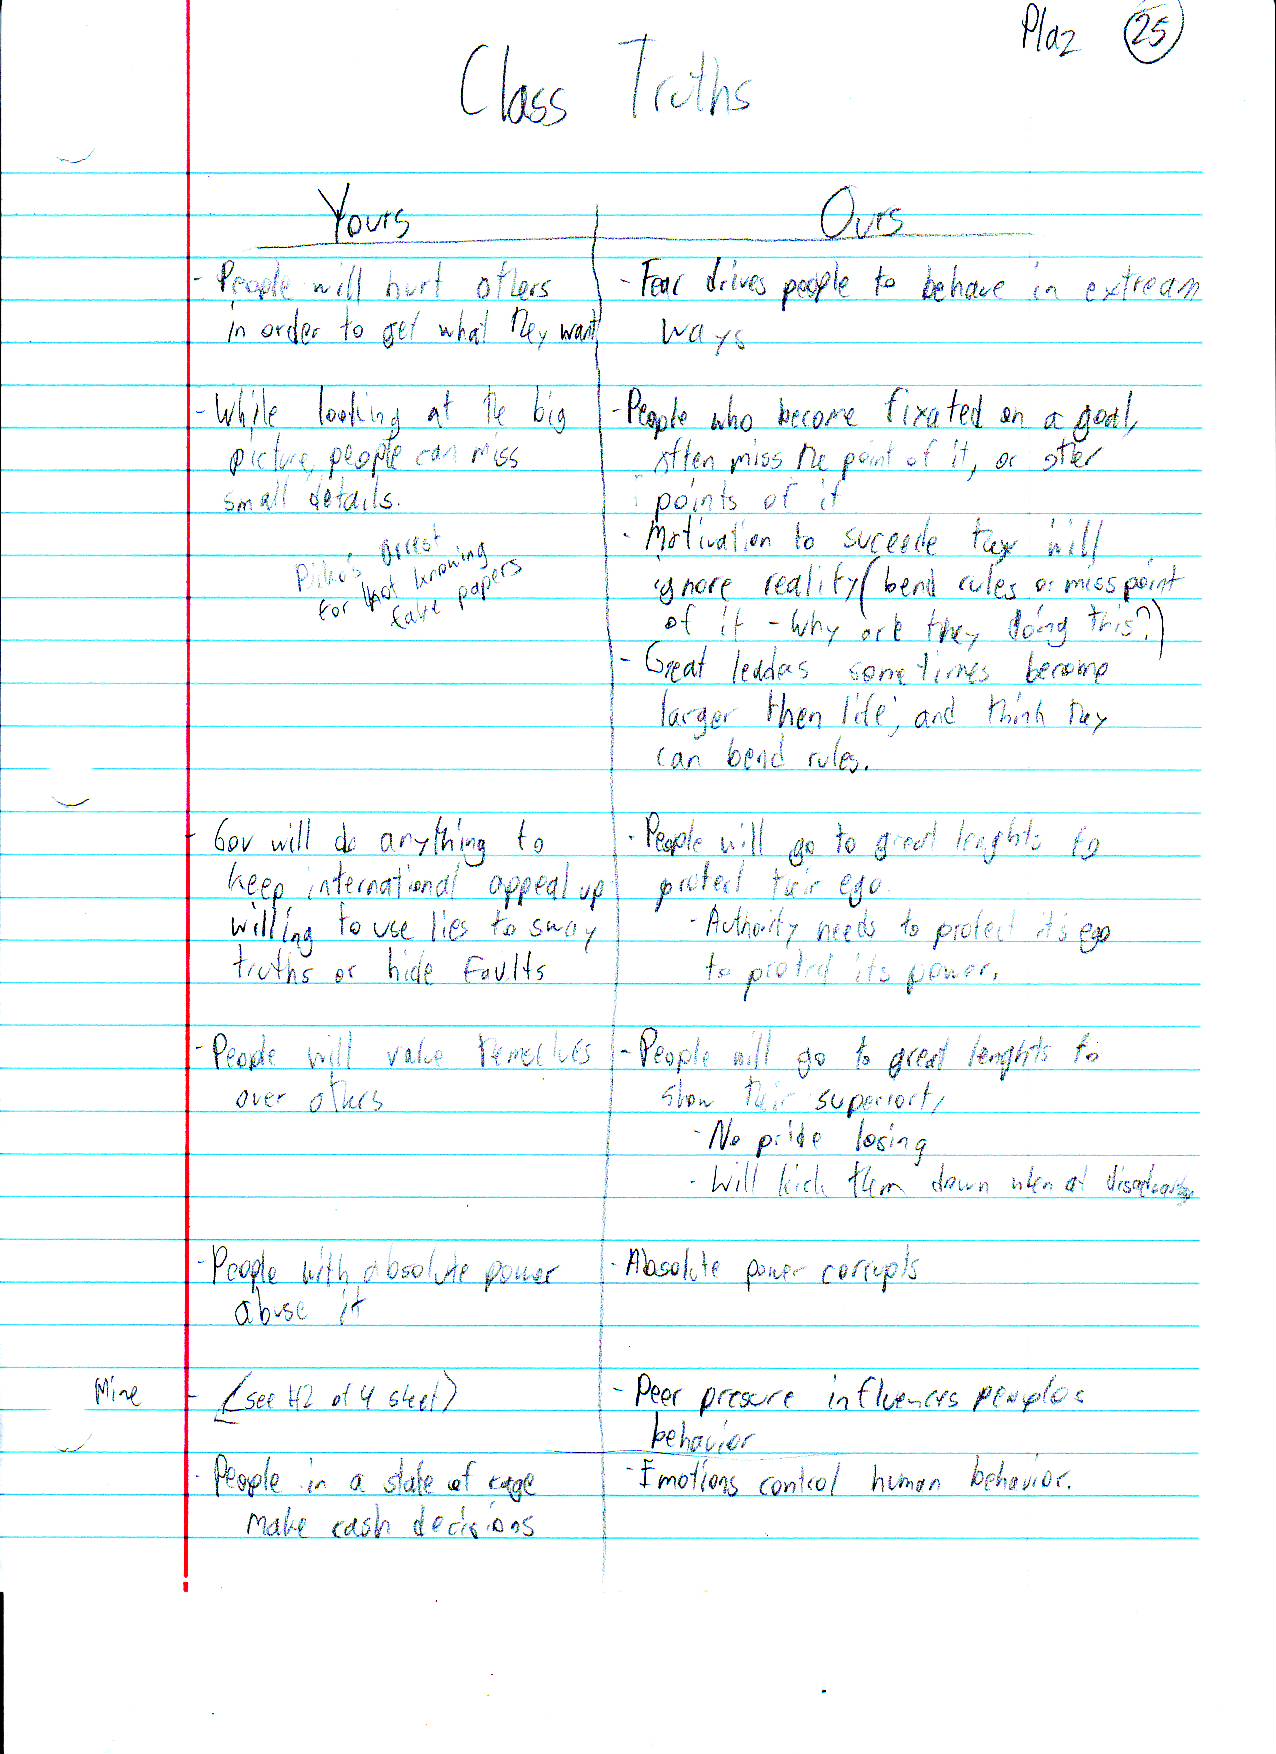 Plaz 25
Class Truths
Yours
Ours
- People will hurt others
in order to get what they want
- Fear drives people to behave in extream
ways
- While looking at the big
picture, people can miss
small details.
Pilho's arrest
For not knowing
fake papers
- People who become fixated on a goal,
often miss the point of it, or other
points of it
- Motivation to succede they will
ignore reality (bend rules or miss point
of it - Why are they doing this?)
- Great leaders sometimes become
larger then life, and think they
can bend rules.
- Gov will do anything to
keep international appeal up
willing to use lies to sway
truths or hide faults
- People will go to great lenghts to
protect their ego.
- Authority needs to protect it's ego
to protect its power.
- People will value themselves
over others
- People will go to great lenghts to
show their superiorty
- No pride losing
- Will kick them down when at
- People with absolute power
abuse it
- Absolute power corrupts
Mine - (see H2 of 4 sheet)
- Peer presure influences
behavior
- People in a state of rage
make rash decisions
- Emotions control human behavior.